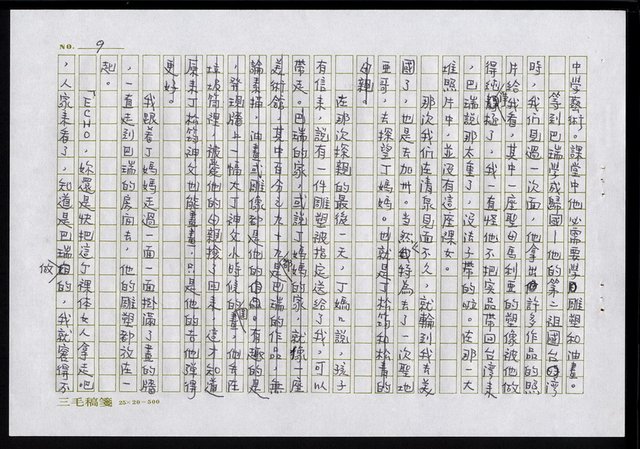 NO. 9
中學藝術。課堂中他必需要學雕塑和油畫。
等到巴瑞學成歸國—他的第二祖國台灣
時，我們見過一次面，他拿出許多作品的照
片給我看，其中一座聖母馬利亞的塑像被他做
得純靜極了，我一直怪他不把實品帶回台灣來
，巴瑞說那太重了，沒法子帶的啦。在那一大
堆照片中，並沒有這座裸女。
那次我們在清泉見面不久，就輪到我去美
國了，也是去加州。當然我特為去了一次聖地
亞哥，去探望丁媽媽。也就是丁松筠和松青的
母親。
在那次探親的最後一天，丁媽媽說，孩子
有信來，說有一件雕塑被指定送給了我，可以
帶走。巴瑞的家，或說丁媽媽的家，就像一座
美術館，其中百分之九十九是巴瑞的作品，無
論素描，油畫或雕像都是他的作品。有趣的是
，發現牆上一幅大丁神父小時候的畫，他丟在
垃圾筒裡，被愛他的母親撿了回來，這才知道
原來丁松筠神父也能畫畫，只是他的吉他彈得
更好。
我跟著丁媽媽走過一面一面掛滿了畫的牆
，一直走到巴瑞的房間去，他的雕塑都放在一
起。
「ECHO，妳還是快把這個裸体女人拿走吧
，人家來看了，知道是巴瑞做的，我就窘得不
三毛稿箋 25×20=500